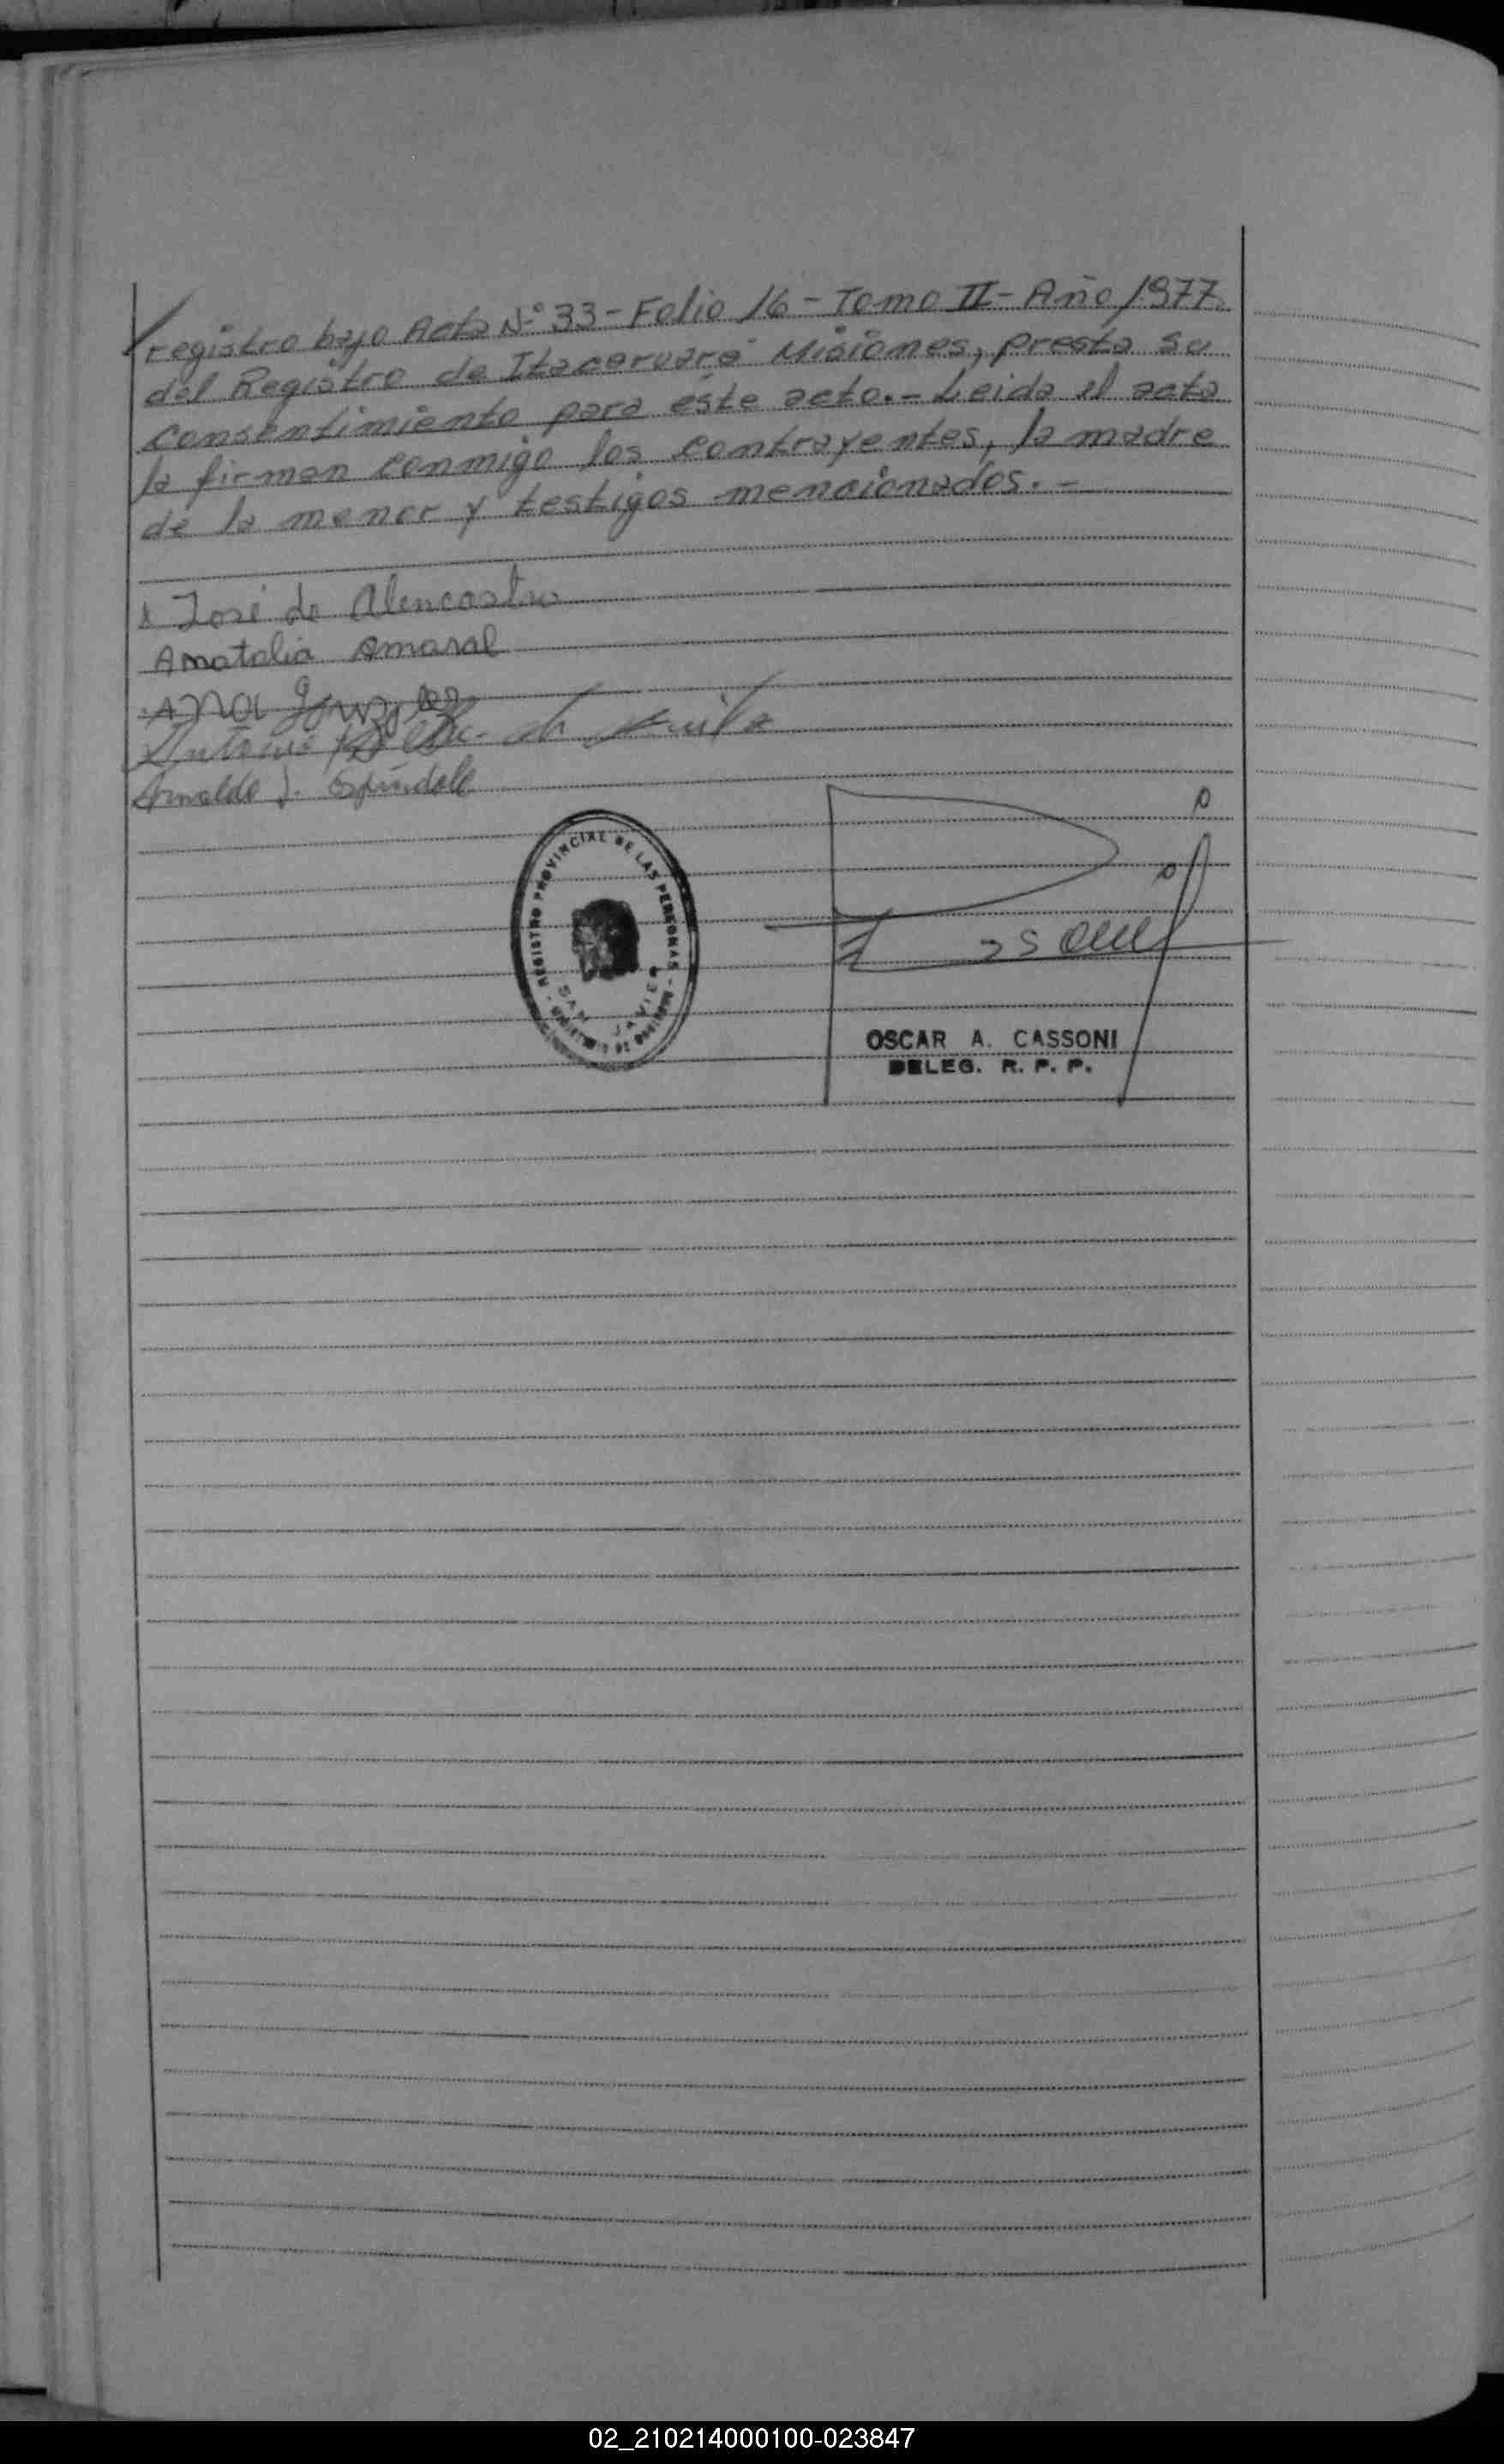 registro bajo Acta N° 33 - Folio 16 - Tomo II - Año 1977.
del Registro de Itacaruaré Misiones, presta su
consentimiento para éste acto.- Leida el acta
la firman conmigo los contrayentes, la madre
de la menor y testigos mencionados. -
x José de Alencastro
Anatalia Amaral
Ana
Antonio
Arnaldo J. Espindola
REGISTRO PROVINCIAL DE LAS PERSONAS
SAN JAVIER
OSCAR A. CASSONI
DELEG. R. P. P.
02_210214000100-023847